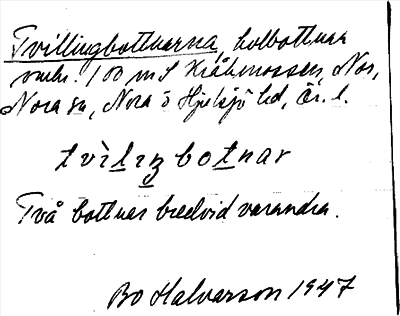 Tvillingbottnarna, kolbottnar
omkr. 100 m S Kråkmossen, Nor,
Nora sn, Nora o Hjulsjö hd, Ör. l.
tvìlıŋbotnar
Två bottnar bredvid varandra.
Bo Halvarson 1947